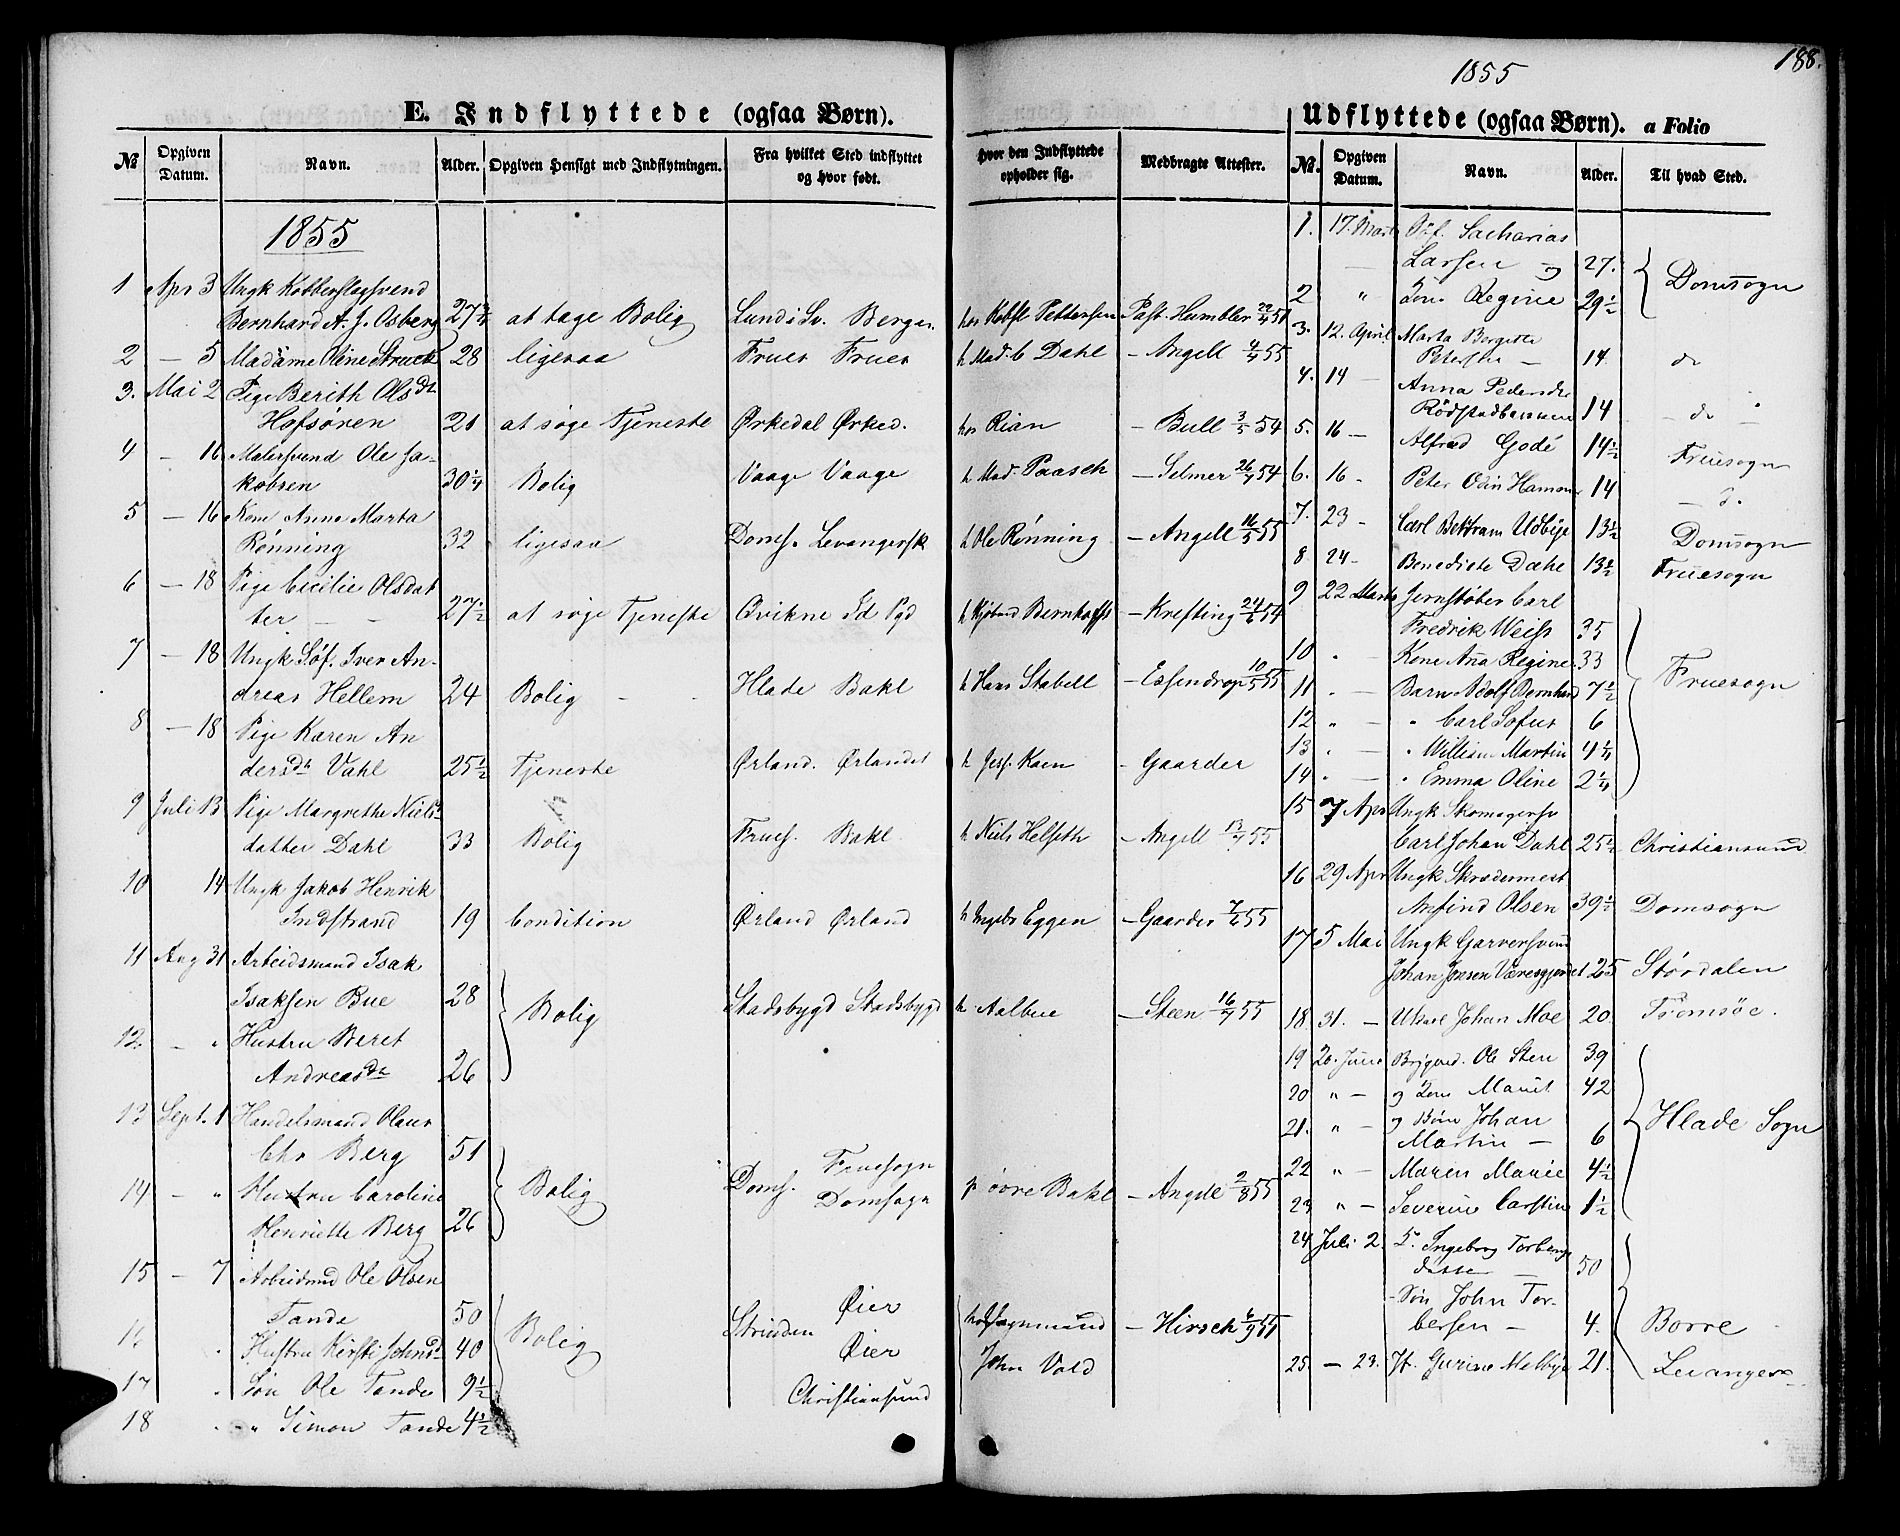 188.
1855
E. Indflyttede (ogsaa Børn).
Udflyttede (ogsaa Børn). a Folio
No Opgiven Datum. Navn. Alder. Opgiven Hensigt med Indflytningen. Fra hvilket Sted indflyttet og hvor født. Hvor den Indflyttede opholder sig. Medbragte Attester.
1855
1 Apr 3 Ungk Kobberslagsvend
Bernhard A. J. Osberg 27 3/4 at tage Bolig Lund i Sv. Bergen. hos Kobsl Pettersen Past. Humbler 22/4 51
2 — 5 Madame Oline Struck 28 ligesaa Frues Frues h Mad. C Dahl — Angell 4/4 55
3. Mai 2 Pige Berith Olsdt
Hofsøren 21 at søge Tjeneste Ørkedal Ørked. hos Rian — Bull 3/5 54
4 — 16 Malersvend Ole Ja-
kobsen 30 1/4 Bolig Vaage Vaage h Mad. Paasch — Selmer 26/4 54
5 — 16 Kone Anne Marta
Rønning 32 ligesaa Doms. Levangersk h Ole Rønning — Angell 16/5 55
6 — 18 Pige Cicilie Olsdat
ter 27 1/2 at søge Tjeneste Qvikne Id Pgd — Krefting 24/6 54
7 — 18 Ungk Søf. Iver An-
dreas Hellem 24 Bolig Hlade Bakl h Hans Stabell — Essendrop 10/5 55
8 — 18 Pige Karen An
dersdt Vahl 25 1/2 Tjeneste Ørland. Ørlandet — Gaarder
9 Juli 13 Pige Margrethe Niels
datter Dahl 33 Bolig Frues. Bakl. h Niels Helseth — Angell 13/7 55
10 14 Ungk Jakob Henrik
Indstrand 19 Condition Ørland Ørland h Ingebr Eggen — Gaarder 7/6 55
11 Aug 31 Arbeidsmand Isak
Isaksen Bue 28 Bolig Stadsbygd Stadsbygd h Aalbue — Steen 16/7 55
12. — " Hustru Beret
Andreasdt 26
13 Sept. 1 Handelsmand Olaus
Chr Berg 51 Bolig Doms. Fruesogn
14 — " Hustru Caroline Domsogn øvre Bakl — Angell 2/8 55
Henriette Berg 26
15 — 7 Arbeidsmd Ole Olsen
Tande 50 Bolig Strinden Øier — Hirsch 6/9 55
Hustru Kirsti Johnsd 40 Øier John Vold
17 Søn Ole Tande 9 1/2 Christiansund
18 " Simon Tande 4 1/2
No. Opgiven Datum. Navn. Alder. Til hvad Sted.
1. 17. Marts Søf. Sacharias
Larsen og 27. Domsogn
2 " Kone Regine 29 1/2
3. 12. April Marta Bergitte
Petersen — 14 do
4. 14 — Anna Pedersdr
14 — do
5. 16 — Alfred Godé 14 1/2 Fruesogn
6. 16 — Peter Odin Hammer 14 — d.
7. 23 — Carl Bettram Udbye 13 1/2 Domsogn
8 24 — Benedicte Dahl 13 1/2 Fruesogn
9 22 Marts Jernstøber Carl
Fredrik Weiss 35 Fruesogn
10 " — Kone Ana Regine 33
11 " — Barn Adolf Bernhard 7 1/2
12 " — " Carl Sofus 6
13 " — " William Martin 4 1/4
14 " — " Emma Oline 2 1/4
15 7 Apr Ungk Skomagersv
Carl Johan Dahl 25 1/2 Christiansund
16 29 Apr Ungk Skrædermest
Anfind Olsen 39 1/2 Domsogn
17 5 Mai Ungk Garversvend
Johan Jensen Væresgjerdet 25 Størdalen
18 31. — Johan Moe 20. Tromsøe.
19 20. Juni Ole Sten 39 Hlade Sogn
20 " — og Kone Marit 42
21. " — og Børn Johan
Martin — 6
22 " — Maren Marie 4 1/2
23 " — Severin Carstin 1 1/2
24 Juli 2. Ingeborg Torberg
datter 50
Søn John Tor-
bersen — 4. Borre
25. — 23. Gurine Melbye 21. Levanger